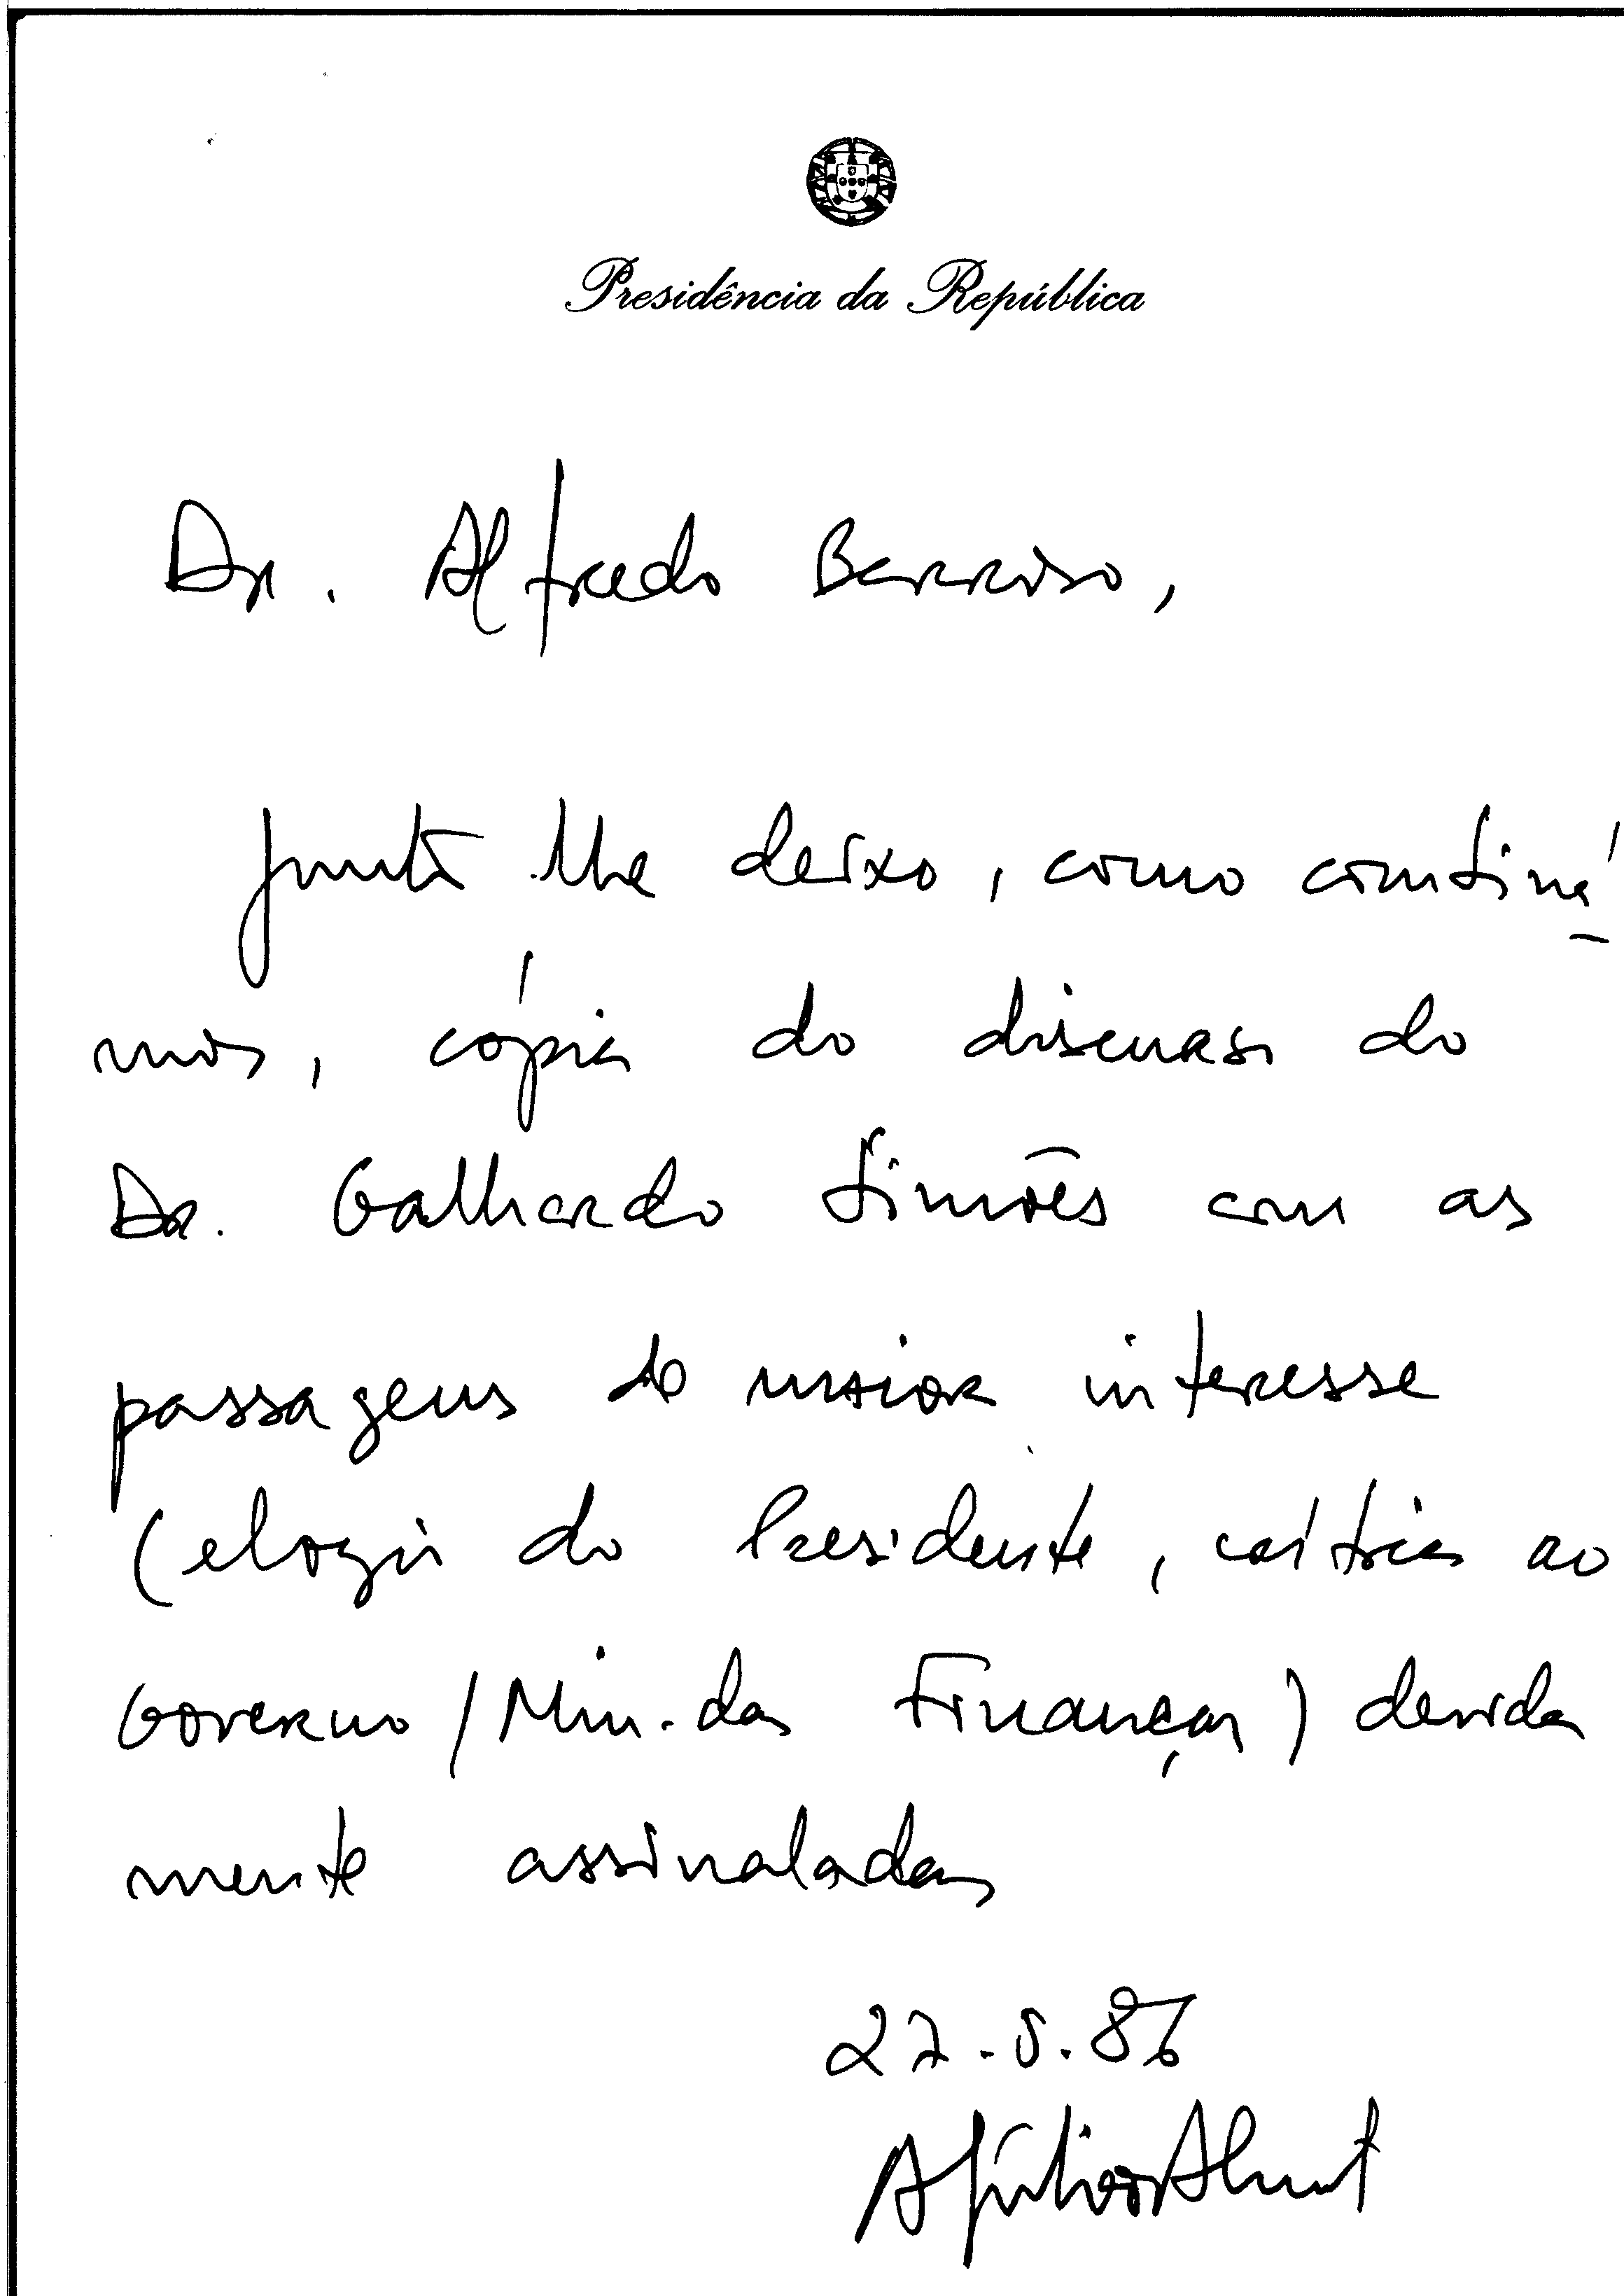 Presidência da República
Dr. Alfredo Barroso,
Junto lhe deixo, como combiná-
mos, cópia do discurso do
Dr. Galhardo Simões com as
passagens de maior interesse
(elogio do Presidente, crítica ao
Governo/Min. das Finanças) devida
mente assinaladas
27.5.86